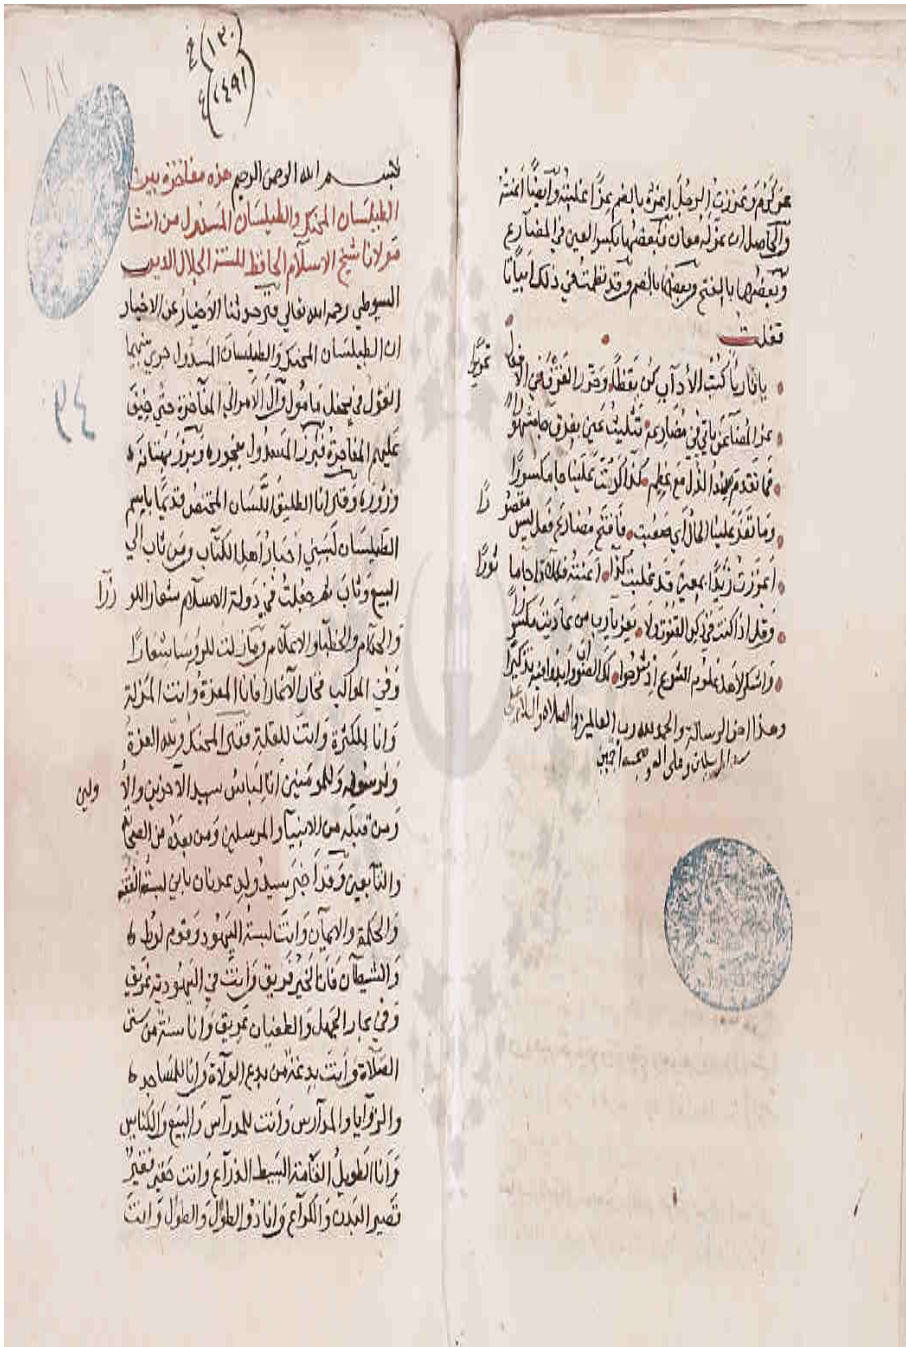 عز كرم وعززت الرجل اعزه بالضم عزا اعليته وايضا اعنته
والحاصل ان عز له معان فبعضها بكسر العين في المضارع
وبعضها بالفتح وبعضها بالضم وقد نظمت في ذلك ابياتا
فقلت
يا قاريا كتب الآداب كن يقظا وحرر الفرق في الافعال تحريرا
عز المضاعف ياتي في مضارعه تثليث عين بفرق جا مشهورا
فما كقل وضد الذل مع عظم كذا كرمت علينا جا مكسورا
وما كعز علينا الحال اي صعبت فافتح مضارعه ليس مقصورا
اعززت زيدا بمعنى قد غلبت كذا اعنته فكلا ذا جا ماثورا
وقل اذا كنت في ذكر القنوت ولا يعز يا رب من عاديت مكسورا
واشكر لاهل علوم الشرع اذ شرحوا لك الصواب وابدوا فيه تذكيرا
وهذا اخر الرسالة والحمد لله رب العالمين والصلاه والسلام على
سيد المرسلين وعلى اله وصحبه اجمعين
١٣٠
١٤٩١
بسم الله الرحمن الرحيم هذه مفاخرة بين
الطيلسان المحنك والطيلسان المسدول من انشا
مولانا شيخ الاسلام الحافظ للسنة الجلال الدين
السيوطي رحمه الله تعالى حدثنا الاخيار عن الاخبار
ان الطيلسان المحنك والطيلسان المسدول جرى بينهما
القول في محفل مامول وآل الامر الى المفاخرة حتى ضيق
عليهم المفاخرة فبرز المسدول بفجوره وبرز ببهتانه
وزوره وقال انا الطليق اللسان المختص قديما باسم
الطيلسان لبسني احبار اهل الكتاب ومن ثاب الى
البيع وثاب ثم جعلت في دولة الاسلام شعار الوزرا
والحكام والخطباء والاعلام وما زلت للروسا شعارا
وفي المواكب فخار الانمار فانا المعزة وانت المذلة
وانا للكثرة وانت للقلة فقال المحنك ولله العزة
ولرسوله وللمومنين انا لباس سيد الآخرين والاولين
ومن قبله من الانبيا والمرسلين ومن بعده من الصحابة
والتابعين وقد اخبر سيد ولد عدنان باني لبسة الفقه
والحكمة والايمان وانت لبسة اليهود وقوم لوط
والشيطان فانا لخير فريق وانت في اليهودية عريق
وفي بحار الجهل والطغيان غريق وانا سنة من سنن
الصلاة وانت بدعة من بدع الولاة وانا للمساجد
والزوايا والمدارس وانت للمدراس والبيع والكنايس
وانا الطويل القامة البسيط الذراع وانت حقير فقير
قصير البدن والكراع وانا ذو الطول والطول وانت